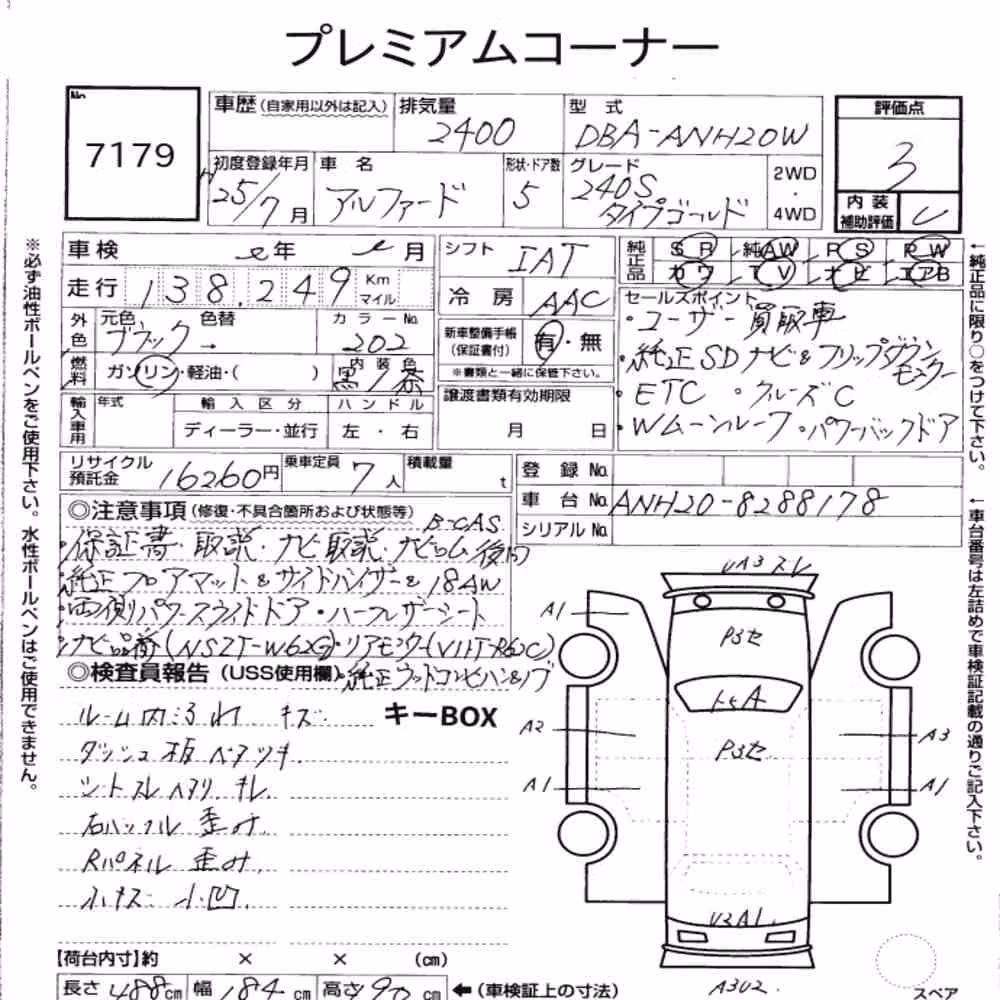 プレミアムコーナー
No. 7179
車歴 (自家用以外は記入) 排気量 2400 型式 DBA-ANH20W
評価点 3
初度登録年月 H25/7月 車名 アルファード 形状・ドア数 5 グレード 240S タイプゴールド 2WD・4WD
内装補助評価 C
車検 年 月
シフト IAT
純正品 SR 純AW PS PW
カワ TV ナビ エアB
走行 138,249 Km マイル
冷房 AAC
セールスポイント
・ユーザー買取車
・純正SDナビ&フリップダウンモニター
・ETC ・クルーズC
・Wムーンルーフ・パワーバックドア
外色 元色 ブラック → 色替 カラーNo. 202
新車整備手帳 (保証書付) 有・無
※書類と一緒に保管下さい。
燃料 ガソリン・軽油・( ) 内装色 黒/茶
譲渡書類有効期限 月 日
輸入車用 年式 輸入区分 ディーラー・並行 ハンドル 左・右
リサイクル預託金 16260円 乗車定員 7人 積載量 t
登録No.
車台No. ANH20-8288178
シリアルNo.
◎注意事項 (修復・不具合箇所および状態等) B-CAS
・保証書・取説・ナビ取説・ナビロム後日
・純正フロアマット&サイドバイザー&18AW
・両側パワースライドドア・ハーフレザーシート
・ナビ品番(NSZT-W62G)・リアモニター(V11T-R62C)
◎検査員報告 (USS使用欄) ・純正ウッドコンビハン&ノブ
ルーム内よごれ キズ キーBOX
ダッシュ板ベタツキ
シートスレ ヘタリ キレ
右バックル 歪み
Rパネル 歪み
小キズ 小凹
【荷台内寸】約 × × (cm)
長さ 488cm 幅 184cm 高さ ←(車検証上の寸法)
UA3 スレ
A1
P3セ
トビA
A2
P3セ
A3
A1
A1
U2A1
A3U2
スペア
※必ず油性ボールペンをご使用下さい。水性ボールペンはご使用できません。
←純正品に限り○をつけて下さい。
←車台番号は左詰めで車検証記載の通りご記入下さい。